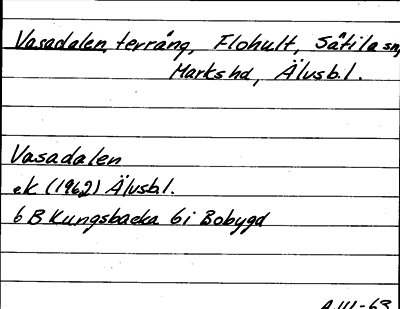 Vasadalen, terräng, Flohult, Sätila sn,
Marks hd, Älvsb.l.
Vasadalen
ek (1962) Älvsb.l.
6 B Kungsbacka 6i Bobygd